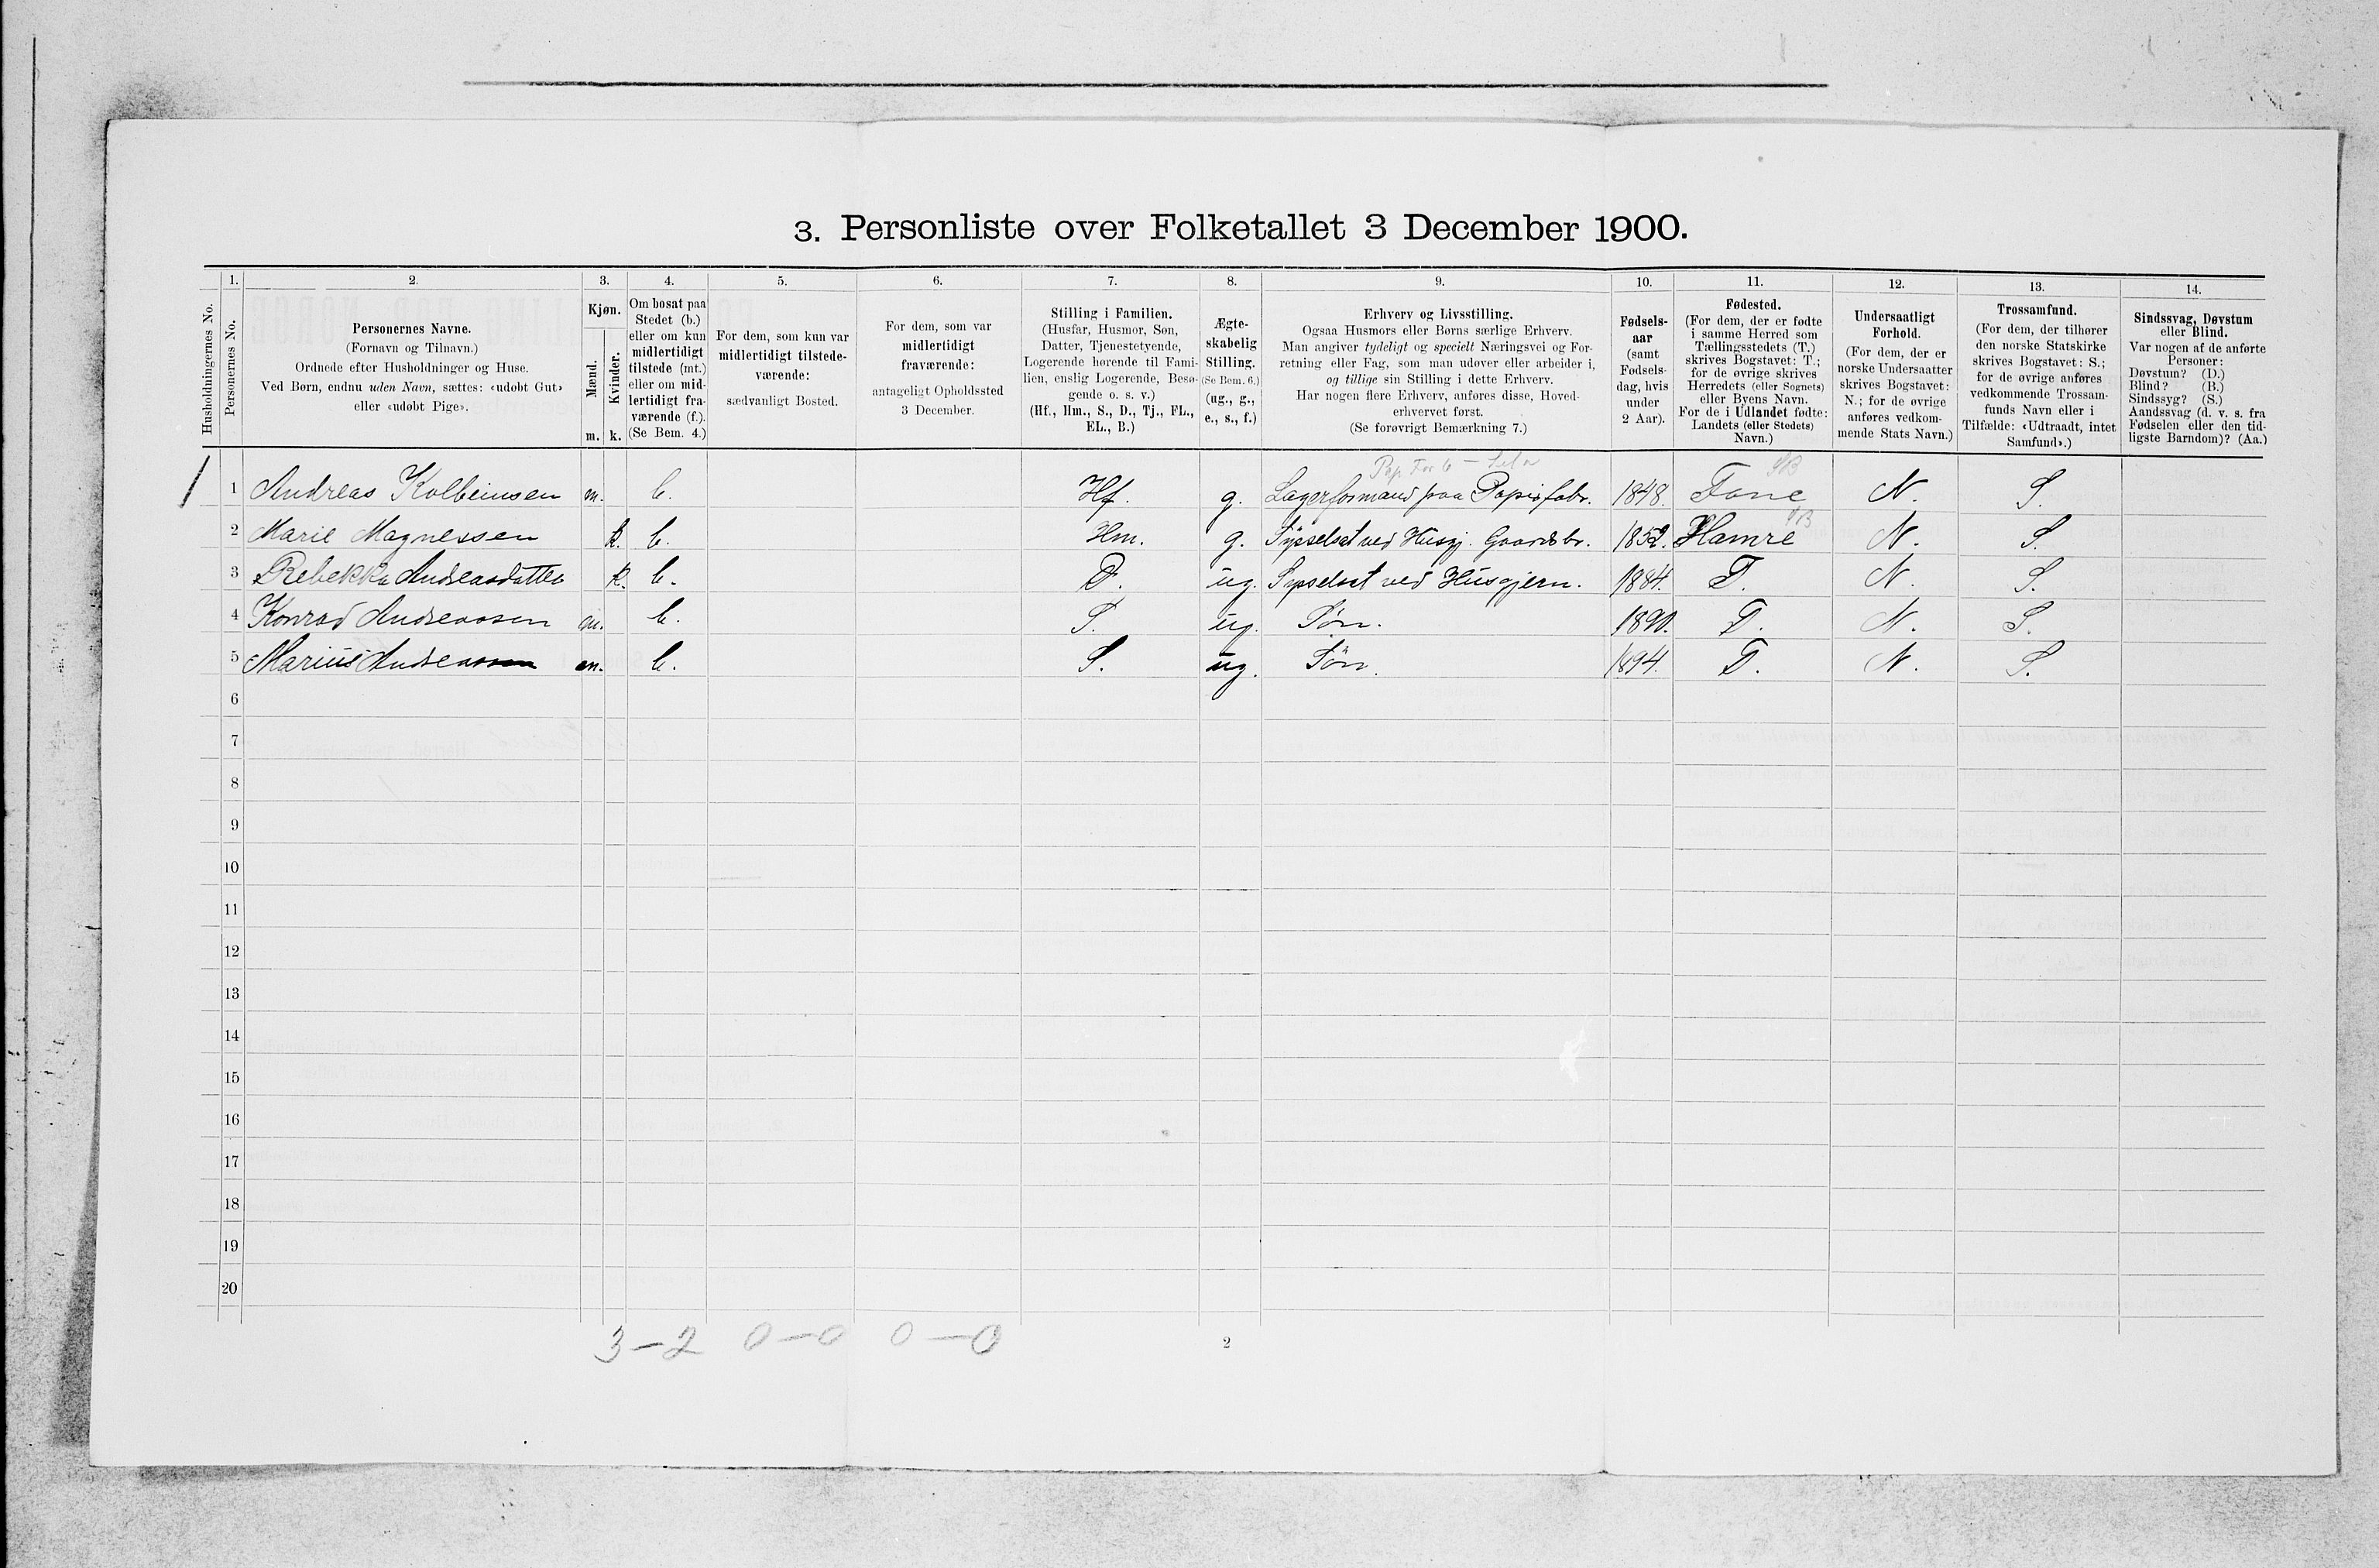 3. Personliste over Folketallet 3 December 1900.
Husholdningernes No.
1. Personernes No.
2. Personernes Navne.
(Fornavn og Tilnavn.)
Ordnede efter Husholdninger og Huse.
Ved Børn, endnu uden Navn, sættes: «udøbt Gut»
eller «udøbt Pige».
3. Kjøn.
Mænd. m.
Kvinder. k.
4. Om bosat paa
Stedet (b.)
eller om kun
midlertidigt
tilstede (mt.)
eller om mid-
lertidigt fra-
værende (f.).
(Se Bem. 4.)
5. For dem, som kun var
midlertidigt tilstede-
værende:
sædvanligt Bosted.
6. For dem, som var
midlertidigt
fraværende:
antageligt Opholdssted
3 December.
7. Stilling i Familien.
(Husfar, Husmor, Søn,
Datter, Tjenestetyende,
Logerende hørende til Fami-
lien, enslig Logerende, Besø-
gende o. s. v.)
(Hf., Hm., S., D., Tj., FL.,
EL., B.)
8. Ægte-
skabelig
Stilling.
(Se Bem. 6.)
(ug., g.,
e., s., f.)
9. Erhverv og Livsstilling.
Ogsaa Husmors eller Børns særlige Erhverv.
Man angiver tydeligt og specielt Næringsvei og For-
retning eller Fag, som man udøver eller arbeider i,
og tillige sin Stilling i dette Erhverv.
Har nogen flere Erhverv, anføres disse, Hoved-
erhvervet først.
(Se forøvrigt Bemærkning 7.)
10. Fødsels-
aar
(samt
Fødsels-
dag, hvis
under
2 Aar).
11. Fødested.
(For dem, der er fødte
i samme Herred som
Tællingsstedets (T.)
skrives Bogstavet: T.;
for de øvrige skrives
Herredets (eller Sognets)
eller Byens Navn.
For de i Udlandet fødte:
Landets (eller Stedets)
Navn.)
12. Undersaatligt
Forhold.
(For dem, der er
norske Undersaatter
skrives Bogstavet:
N.; for de øvrige
anføres vedkom-
mende Stats Navn.)
13. Trossamfund.
(For dem, der tilhører
den norske Statskirke
skrives Bogstavet: S.;
for de øvrige anføres
vedkommende Trossam-
funds Navn eller i
Tilfælde: «Udtraadt, intet
Samfund».)
14. Sindssvag, Døvstum
eller Blind.
Var nogen af de anførte
Personer:
Døvstum? (D.)
Blind? (B.)
Sindssyg? (S.)
Aandssvag (d. v. s. fra
Fødselen eller den tid-
ligste Barndom)? (Aa.)
1 1 Andreas Kolbeinsen m. b. Hf. g. Lagerformand paa Papirfabr. 1848. Fane N. S.
2 Marie Magnessen k. b. Hm. g. Sysselsat ved Husgj. Gaardsbr. 1852. Hamre N. S.
3 Rebekka Andreasdatter k. b. D. ug. Sysselsat ved Husgjern. 1884. T. N. S.
4 Konrad Andreassen m. b. S. ug. Søn. 1890. T. N. S.
5 Marius Andreassen m. b. S. ug. Søn. 1894. T. N. S.
6
7
8
9
10
11
12
13
14
15
16
17
18
19
20
3-2 0-0 0-0
2